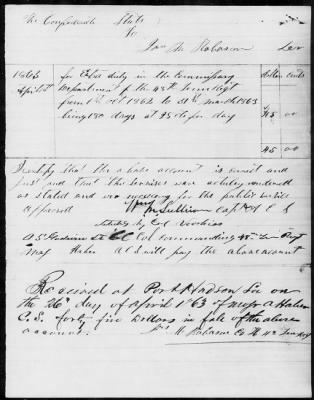 The Confederate States
To
Jas M Robason Der
1863 for Extra duty in the Commissary Dollars Cents
April 1st Department of the 48th Tenn Regt
from 1st Oct 1862 to 31st March 1863
being 180 days at 25 cts per day 45 00
45 00
I certify that the above account is correct and
just and that the services were actually rendered
as stated and were necessary for the public service
approved Sullivan Capt A C S
Col Voorhies
A S Godwin Lt Col Commanding 48th Ten Regt
Maj Haber A C S will pay the above account
Received at Port Hudson La on
the 26th day of April 1863 of Major A Haber
C.S. forty five Dollars in full of the above
account. Jas M Robason Co H 48 Tenn Reg